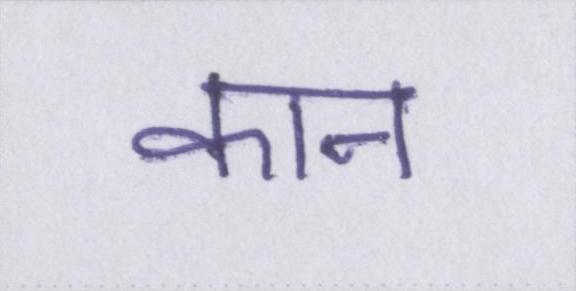 कान